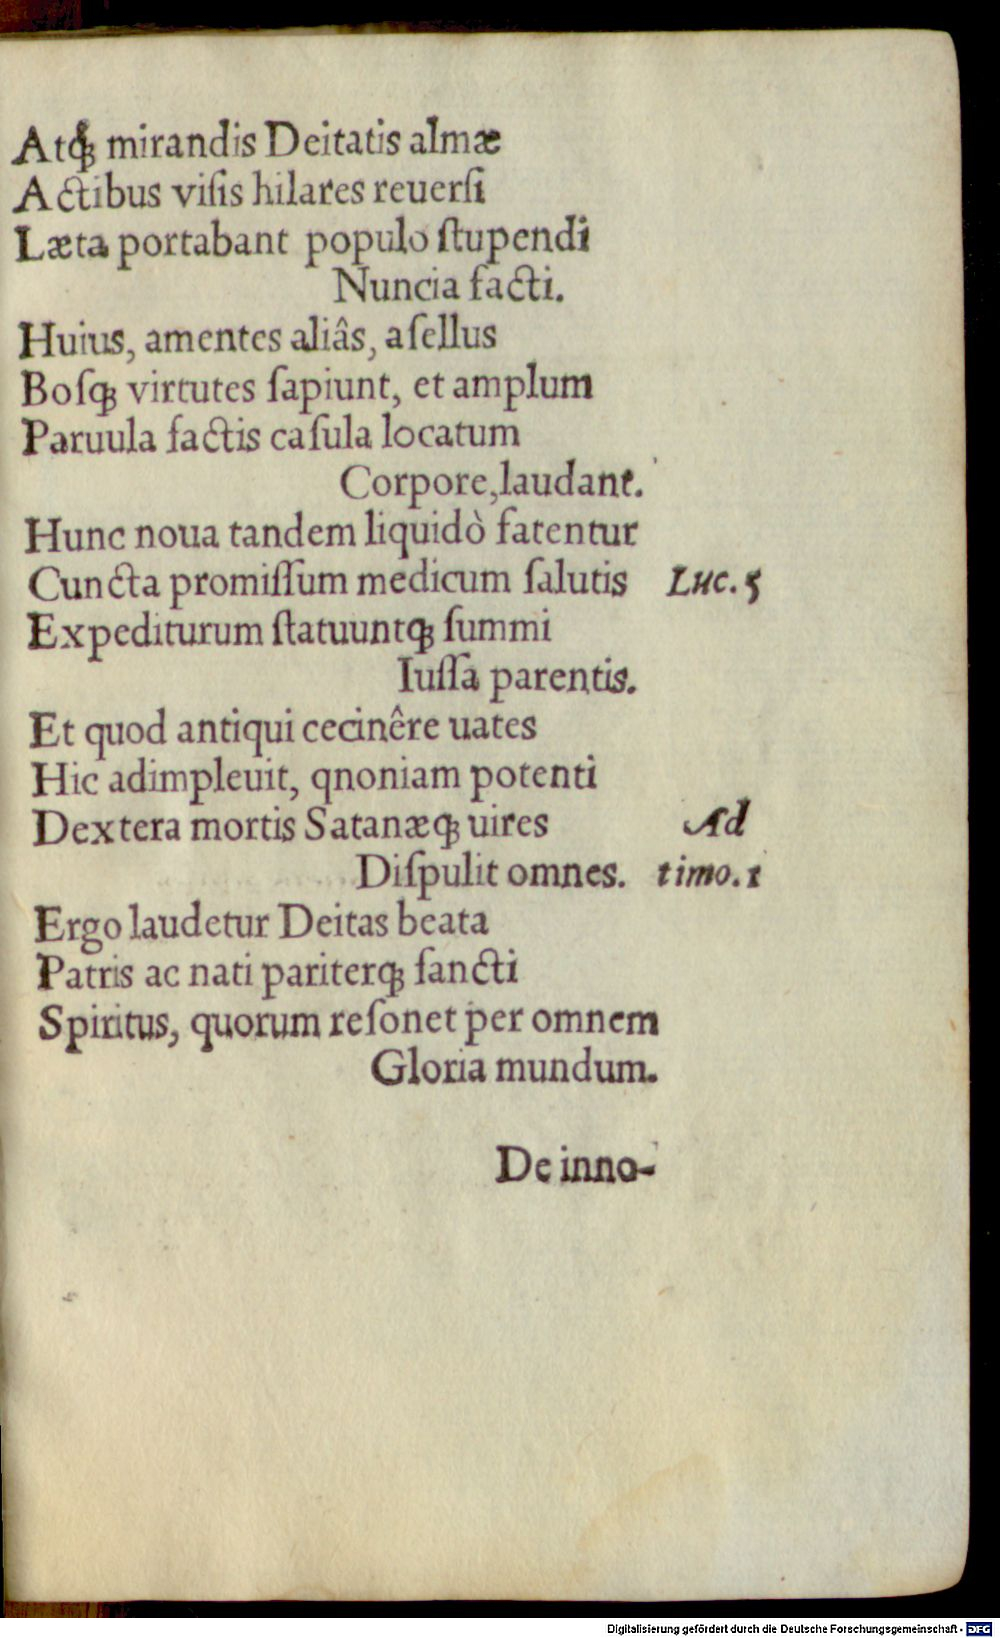 Atqꝫ mirandis Deitatis almæ
Actibus viſis hilares reuerſi
Læta portabant populo ſtupendi
Nuncia facti.
Huius, amentes aliâs, aſellus
Boſqꝫ virtutes ſapiunt, et amplum
Paruula factis caſula locatum
Corpore, laudant.
Hunc noua tandem liquidò fatentur
Cuncta promiſſum medicum ſalutis Luc. 5
Expediturum ſtatuuntqꝫ ſummi
Iuſſa parentis.
Et quod antiqui cecinêre uates
Hic adimpleuit, qnoniam potenti
Dextera mortis Satanæqꝫ uires Ad
Diſpulit omnes. timo. 1
Ergo laudetur Deitas beata
Patris ac nati pariterqꝫ ſancti
Spiritus, quorum reſonet per omnem
Gloria mundum.
De inno-
Digitalisierung gefördert durch die Deutsche Forschungsgemeinschaft - DFG